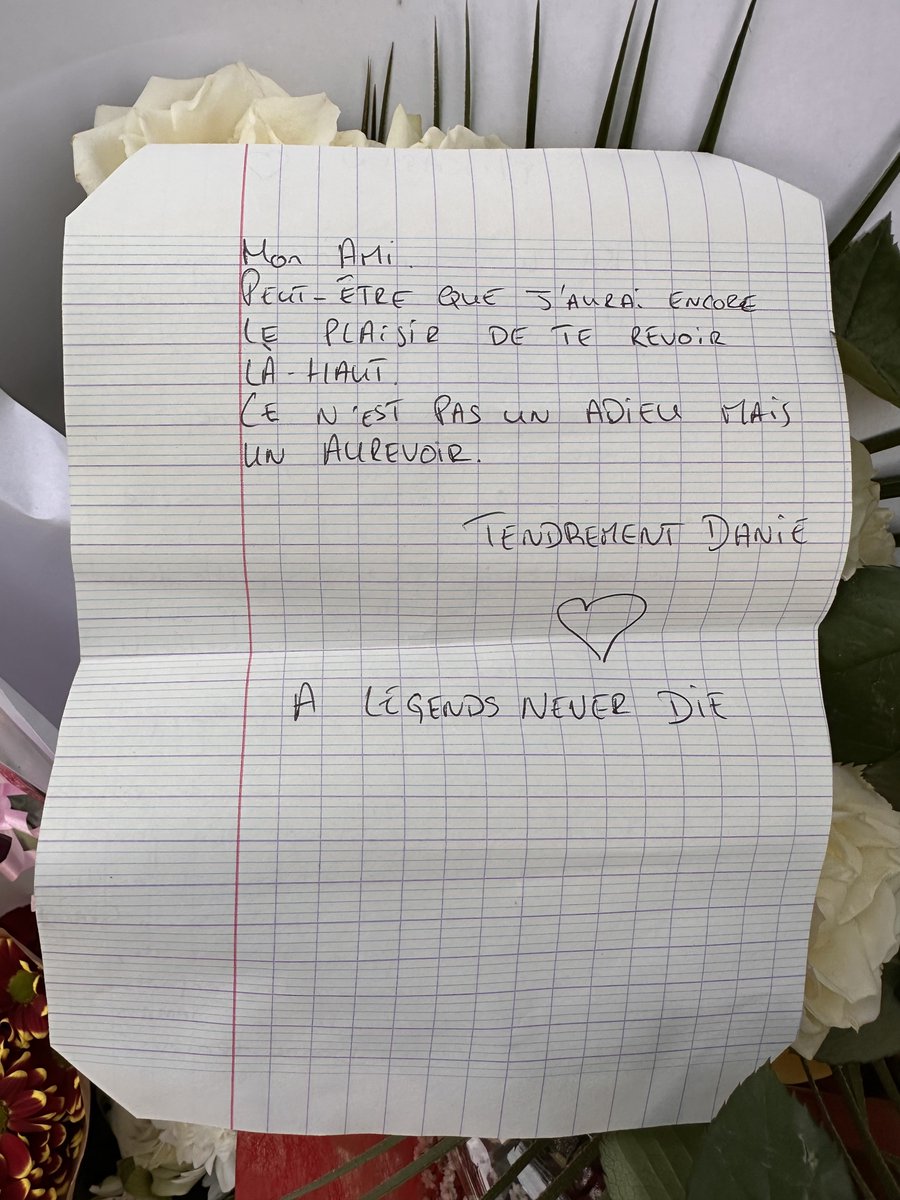 Mon AMi.
PEUT-ÊTRE QUE J'AURAi ENCORE
LE PLAiSiR DE TE REVOiR
LÀ-HAUT.
CE N'EST PAS UN ADiEU MAiS
UN AUREVOiR.
TENDREMENT DANiE
A LEGENDS NEVER DiE